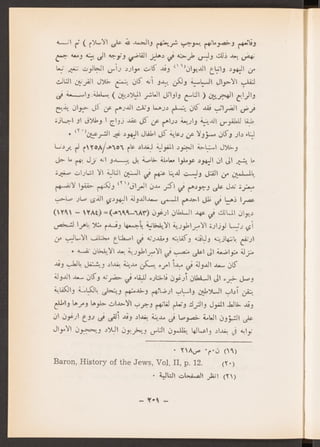 وقائعهم وخصوماتهم بموجب شريعتهم والحمد لله على الاسلام ) ثم انــه
نهض بعد ذلك ولبس طرحته في دهليز القاضي وتوجه الى بيته ومعه جمع
من اليهود واتباع الديوان(١٩) وقد كانت موارد رأس الجالوت تتغير تبعا
لتقلب الاحوال السياسية ولكن يبدو أنه كان يتمتع خلال القرنين الثالث
والرابع الهجريين ( التاسع واوائل العاشر الميلاديين ) بسلطة واسعــة فى
فرض الضرائب فقد كان يتسلم درهما وثلث الدرهم عن كل حيوان يذبح
تبعا للطقوس الدينية واربعة دراهم عن كل عقد زواج او وطلاق او اجازة
لبناء دار وكان مسؤولا عن رعاية كل اطفال اليهود غير الشرعيين(٢٠) ٠
وخلال استباحة الجنود المغولية لبغداد عام ٦٥٦هـ/١٢٥٨م لم يردنا
ما يشير الى ان اليهود عوملوا معاملة خاصة بل يبــدو انه نزل بهم ما حل
بالمسلمين من القتل وليست لدينا عنهم في السنين التالية الا اشارات صغيرة
مبعثرة تدل على وجودهم في اكثر مدن العراق(٢١) ولكنهم حققوا لانفسهم
عصرا ذهبيا في ظل احدهم المسمى سعدالدولة اليهودي الذى صار صاحب
ديوان المالك في عهد السلطان ارغون (٦٨٣-٦٩٠هـ)=( ١٢٨٤ - ١٢٩١)
أي رئيسا لوزارة الامبراطورية الايلخانية بأجمعها وقــدم مثلا باهرا لشخص
ارتفع بانتهازيته ولباقته وكفايته ومقدرته في اصطناع مختلف الاساليب من
منزلة متواضعة الى اعلى منصب في الامبراطورية بعد الايلخان نفسه ٠
كان سعد الدولة في مبدأ امره يسكن مدينة بغداد ويشتغل بالطب وقد
وصل خبره الى السلطان أرغون فاختاره للبقاء في حضرته وكان سعد الدولة
يتقن آداب السلاطين واسباب ارضائهم وخدمتهم ويتحلى بالكياسة والكفاية
وقد خالط المغول والترك وتعلم لغاتهم وجرب الاحداث حلوها ومرها واطلع
على الشؤون العامة خصوصا في مدينة بغداد وقد ألقى فى روع ارغون ان
نوابه فى بغداد واعمالها يظلمون الناس ويخربون البلاد ويحجبون الاموال
(١٩) ن٠م٠ ص٢١٨ ٠
(٢٠) Baron, History of the Jews, Vol, II, p. 12.
(٢١) انظر الصفحات التالية ٠
- ٣٠٩ -